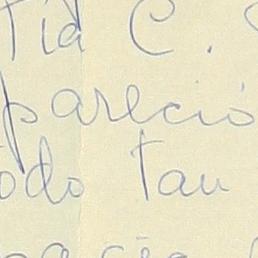 Tia C.
pareció
odo tan